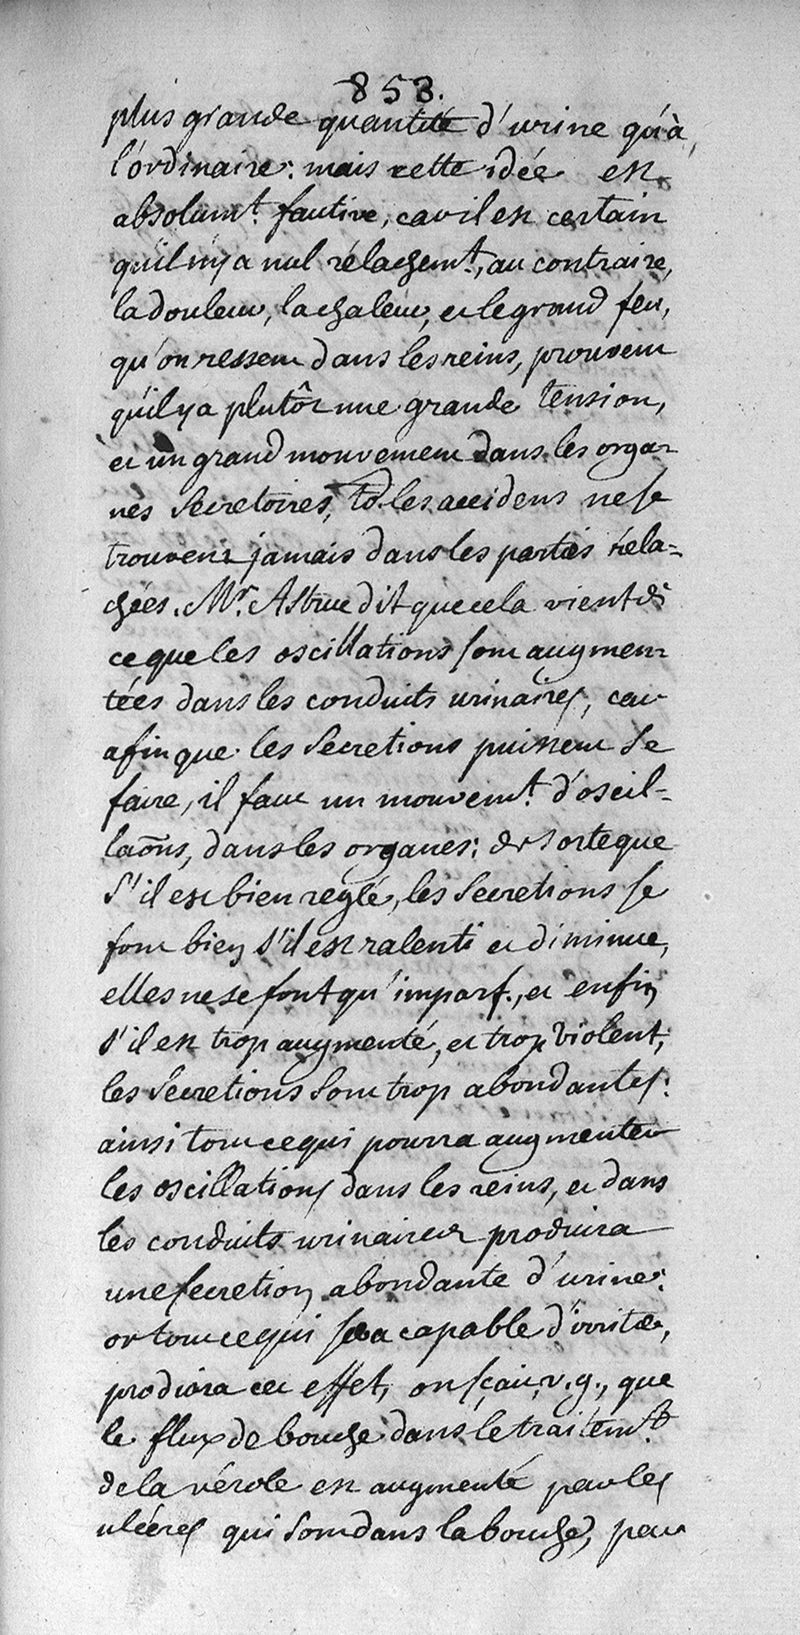 853.
plus grande quantité d'urine qu'à
l'ordinaire: mais cette idée est
absolumt. fautive, car il est certain
qu'il n'y a nul rélachemt., au contraire,
la douleur, la chaleur, et le grand feu,
qu'on ressent dans les reins, prouvent
qu'il y a plutôt une grande tension,
et un grand mouvement dans les orga=
nes secretoires, les accidens ne se
trouvent jamais dans les parties réla=
chées. Mr. Astruc dit que cela vient de
ce que les oscillations sont augmen=
tées dans les conduits urinaires, car
afin que les secretions puissent se
faire, il faut un mouvemt. d'oscil=
laõns, dans les organes; de sorte que
s'il est bien reglé, les secretions se
font bien s'il est ralenti et diminue,
elles ne se font qu'imparf., et enfin
s'il est trop augmenté, et trop violent,
les secretions sont trop abondantes:
ainsi tout ce qui pourra augmenter
les oscillations dans les reins, et dans
les conduits urinaires produira
une secretion abondante d'urine:
or tout ce qui sera capable d'irriter,
produira cet effet, on sçait, v.g., que
le flux de bouche dans le traitemt.
de la vérole est augmenté par les
ulcéres qui sont dans la bouche, par